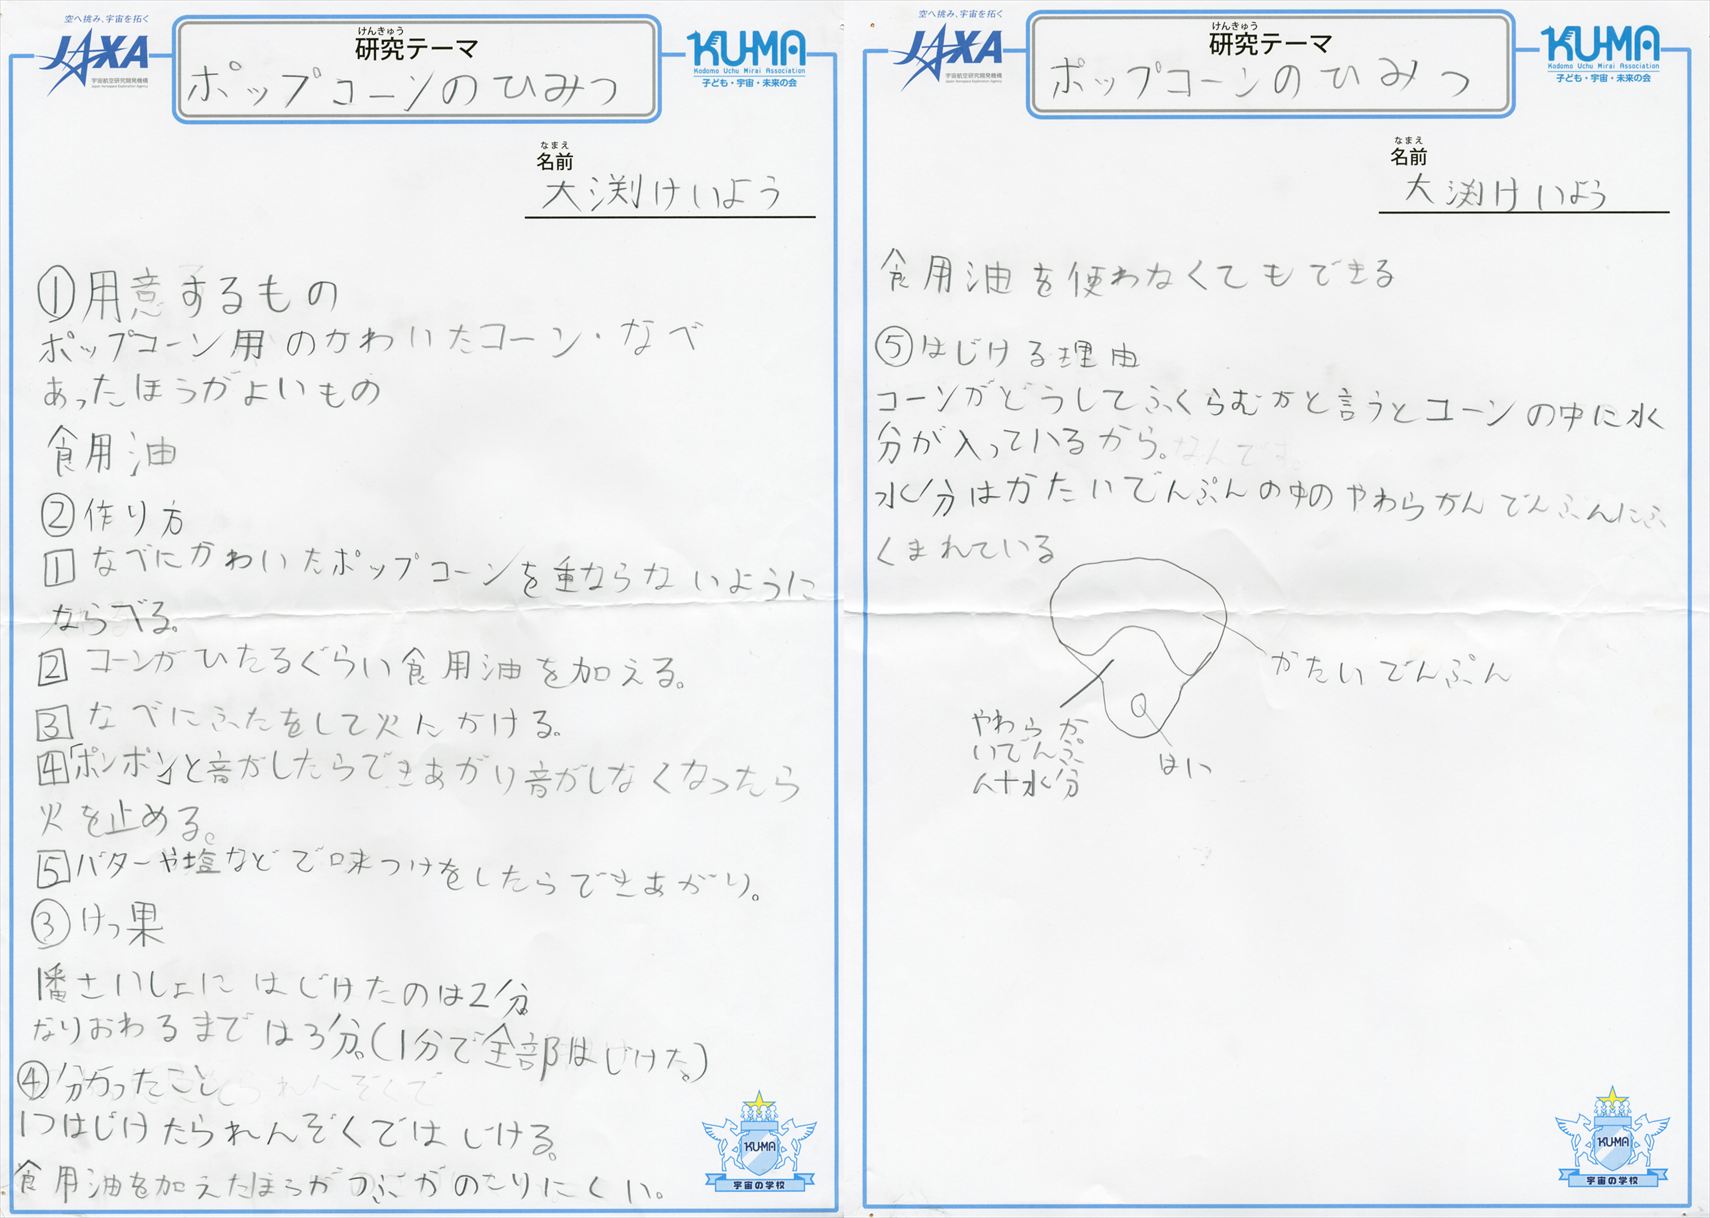 空へ挑み、宇宙を拓く
JAXA
宇宙航空研究開発機構
Japan Aerospace Exploration Agency
けんきゅう
研究テーマ
ポップコーンのひみつ
KU-MA
Kodomo Uchu Mirai Association
子ども・宇宙・未来の会
なまえ
名前
大渕けいよう
①用意するもの
ポップコーン用のかわいたコーン・なべ
あったほうがよいもの
食用油
②作り方
1 なべにかわいたポップコーンを重ならないように
ならべる。
2 コーンがひたるぐらい食用油を加える。
3 なべにふたをして火にかける。
4「ポンポン」と音がしたらできあがり音がしなくなったら
火を止める。
5 バターや塩などで味つけをしたらできあがり。
③けっ果
1番さいしょにはじけたのは2分。
なりおわるまでは3分。(1分で全部はじけた。)
④分かったこと
1つはじけたられんぞくではじける。
食用油を加えたほうがつぶがのこりにくい。
KU-MA
宇宙の学校
空へ挑み、宇宙を拓く
JAXA
宇宙航空研究開発機構
Japan Aerospace Exploration Agency
けんきゅう
研究テーマ
ポップコーンのひみつ
KU-MA
Kodomo Uchu Mirai Association
子ども・宇宙・未来の会
なまえ
名前
大渕けいよう
食用油を使わなくてもできる
⑤はじける理由
コーンがどうしてふくらむかと言うとコーンの中に水
分が入っているから。
水分はかたいでんぷんの中のやわらかんでんぷんにふ
くまれている
かたいでんぷん
やわらか
いでんぷ
ん+水分
はい
KU-MA
宇宙の学校